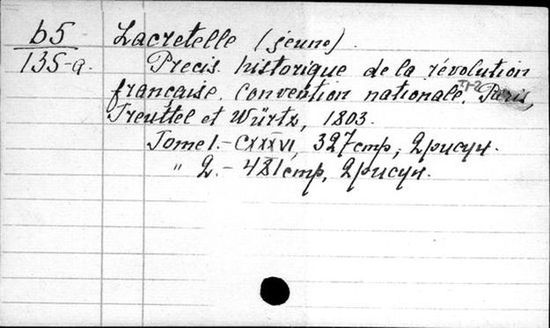 b5 Lacretelle (jeune).
135-a. Precis historique de la révolution
française. Convention nationale. T1-2 Paris,
Treuttel et Würtz, 1803.
Tome 1.- CXXXVI, 327 стр, 2 рисун.
" 2. - 481 стр, 2 рисун.